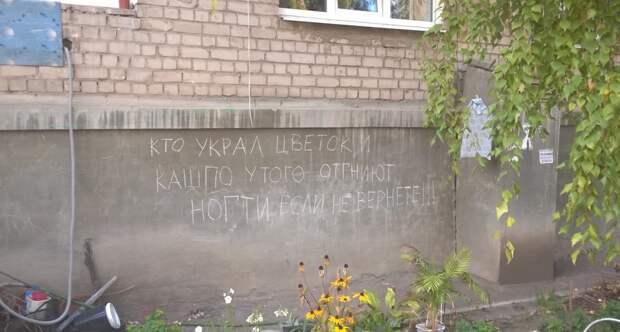 КТО УКРАЛ ЦВЕТОК И
КАШПО У ТОГО ОТГНИЮТ
НОГТИ ЕСЛИ НЕ ВЕРНЕТЕ!!!